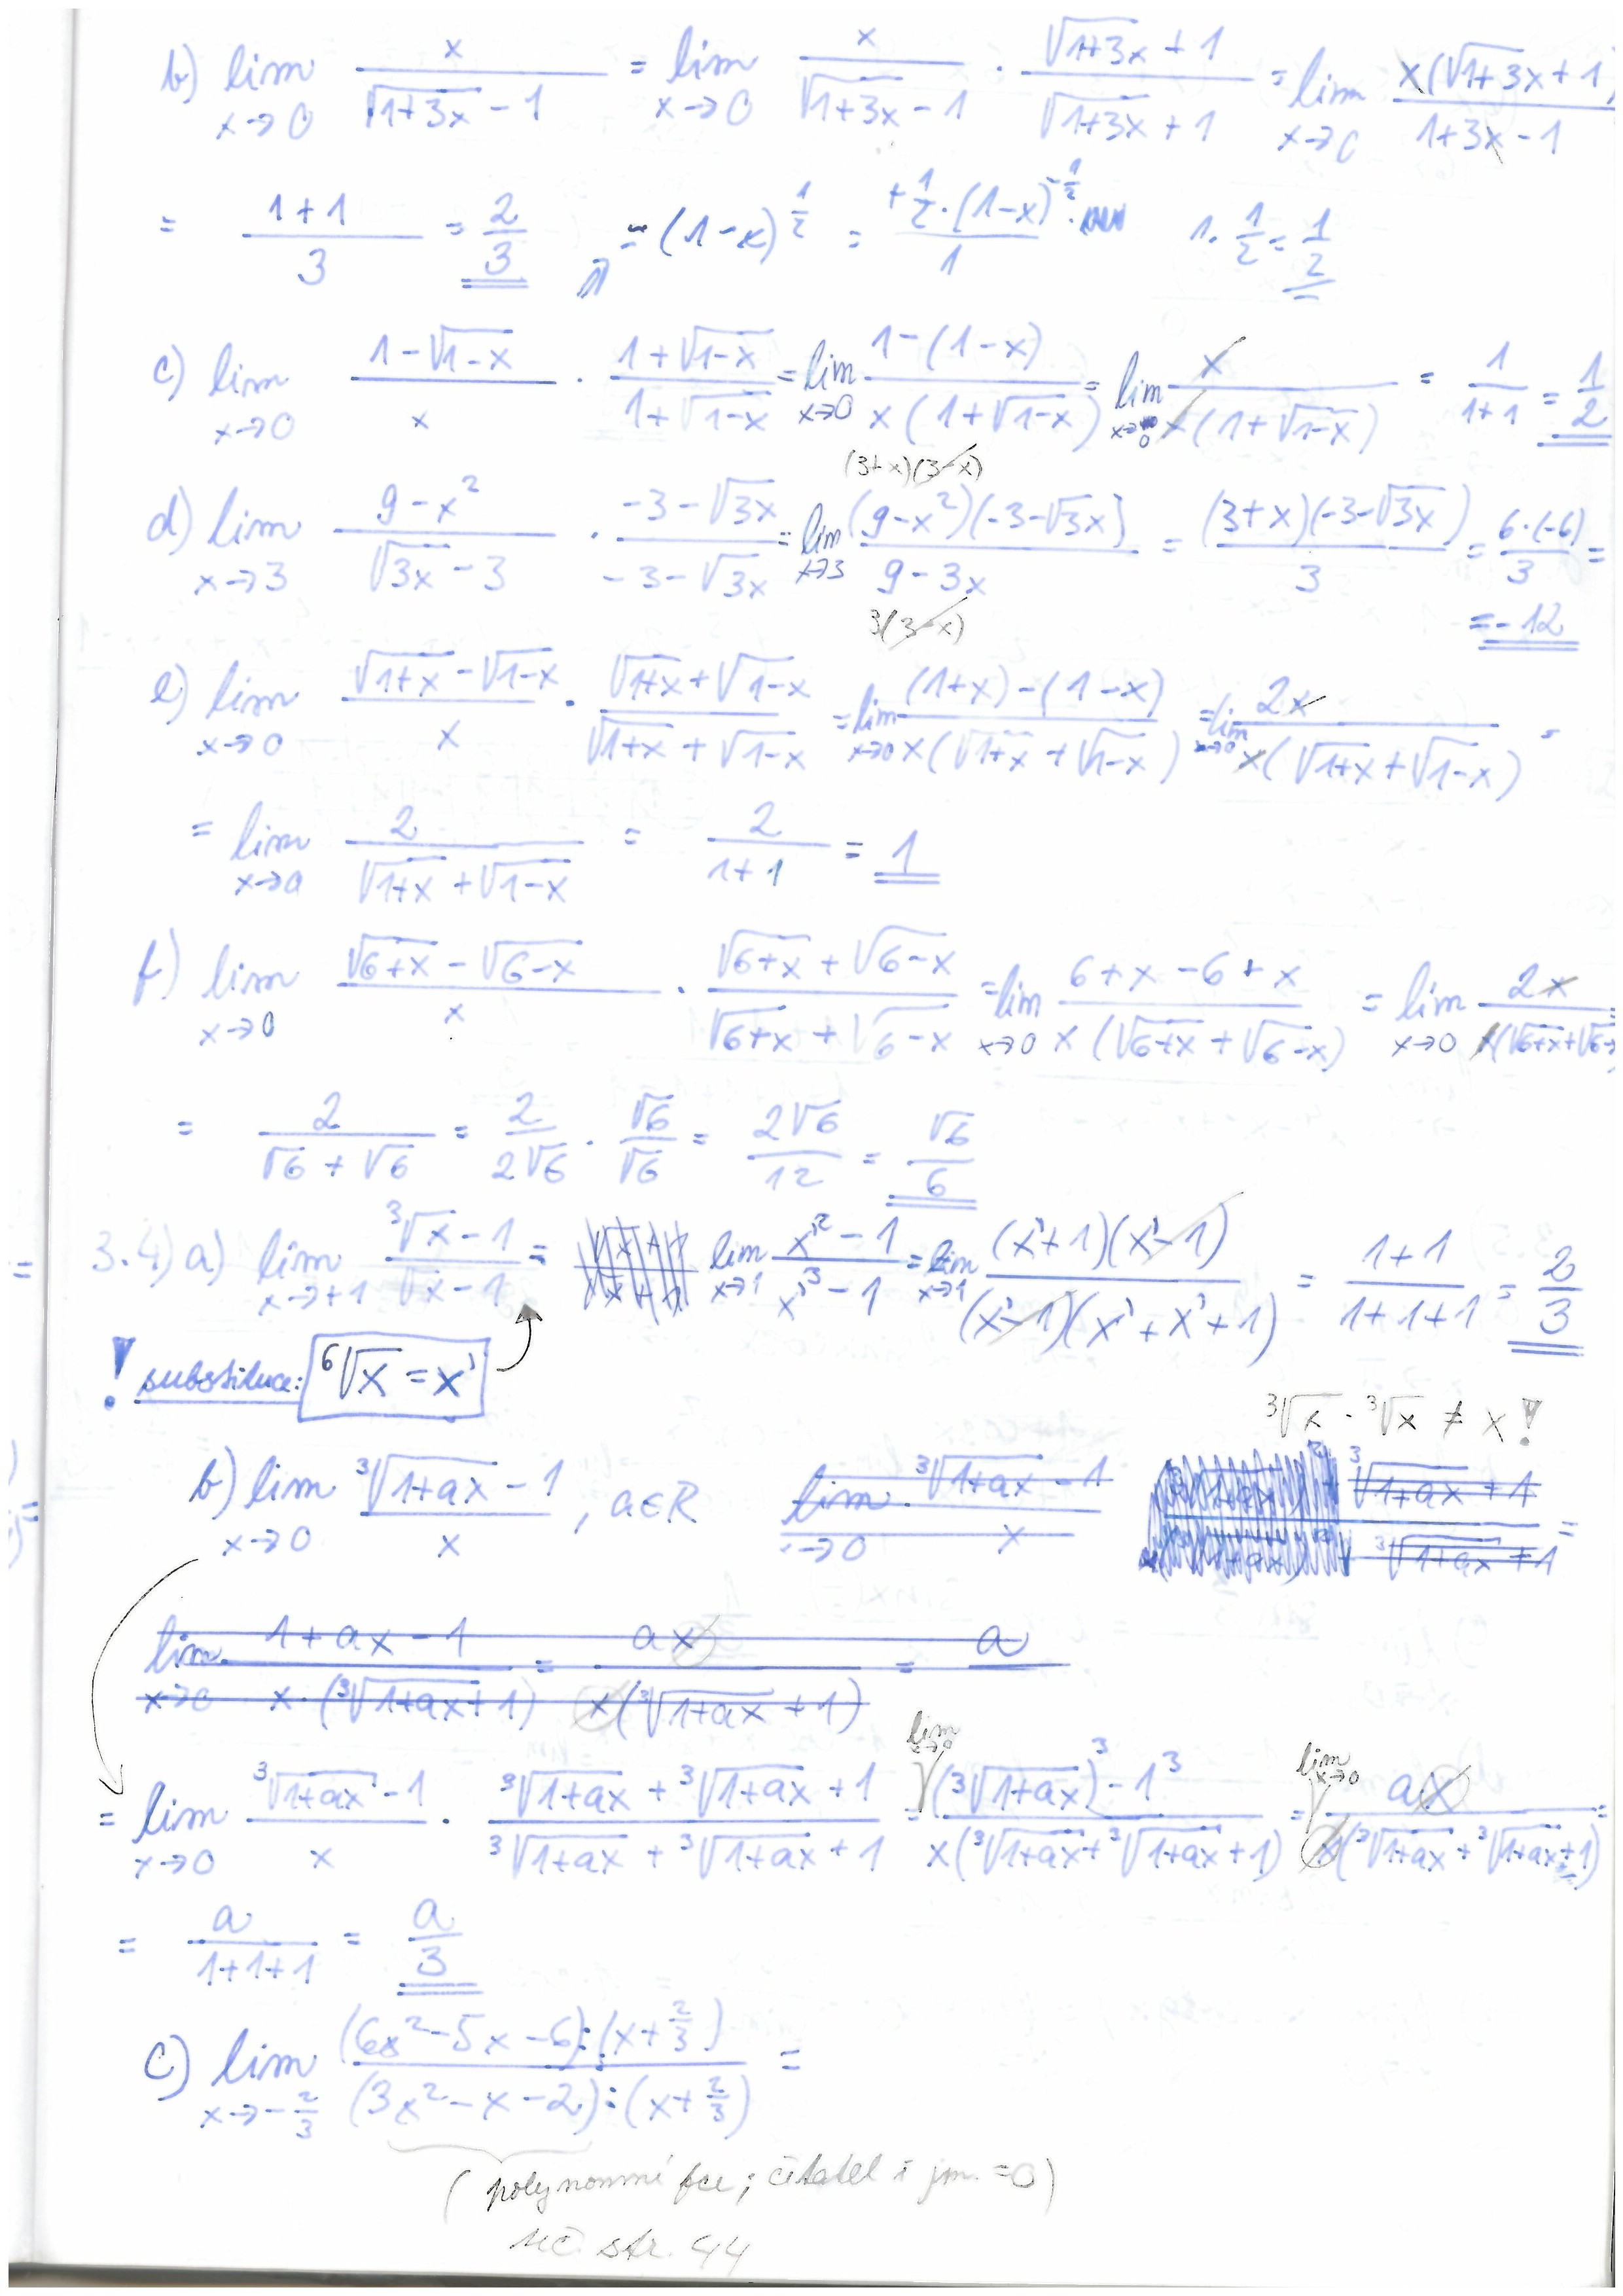 b) lim x→0 x/(√(1+3x) - 1) = lim x→0 x/(√(1+3x) - 1) · (√(1+3x) + 1)/(√(1+3x) + 1) = lim x→0 x(√(1+3x) + 1)/(1+3x - 1)
= (1+1)/3 = 2/3 = (1-x)^(1/2) = (+1/2 · (1-x)^(-1/2) ·)/1 1 · 1/2 = 1/2
c) lim x→0 (1 - √(1-x))/x · (1 + √(1-x))/(1 + √(1-x)) = lim x→0 (1-(1-x))/(x(1+√(1-x))) = lim x→0 x/(x(1+√(1-x))) = 1/(1+1) = 1/2
(3+x)(3-x)
d) lim x→3 (9-x²)/(√(3x) - 3) · (-3-√(3x))/(-3-√(3x)) = lim x→3 (9-x²)(-3-√(3x))/(9-3x) = (3+x)(-3-√(3x))/3 = 6·(-6)/3 =
3(3-x)
= -12
e) lim x→0 (√(1+x) - √(1-x))/x · (√(1+x) + √(1-x))/(√(1+x) + √(1-x)) = lim x→0 ((1+x) - (1-x))/(x(√(1+x) + √(1-x))) = lim x→0 2x/(x(√(1+x) + √(1-x))) =
= lim x→0 2/(√(1+x) + √(1-x)) = 2/(1+1) = 1
f) lim x→0 (√(6+x) - √(6-x))/x · (√(6+x) + √(6-x))/(√(6+x) + √(6-x)) = lim x→0 (6+x-6+x)/(x(√(6+x) + √(6-x))) = lim x→0 2x/(x(√(6+x)+√(6-
= 2/(√6 + √6) = 2/(2√6) · √6/√6 = 2√6/12 = √6/6
= 3.4) a) lim x→+1 (³√x - 1)/(√x - 1) = lim x→1 (x'² - 1)/(x'³ - 1) = lim x→1 (x'+1)(x'-1)/((x'-1)(x'+x'+1)) = (1+1)/(1+1+1) = 2/3
! substituce: ⁶√x = x'
³√x · ³√x ≠ x !
b) lim x→0 (³√(1+ax) - 1)/x , a∈R lim x→0 (³√(1+ax) - 1)/x · (³√(1+ax) + 1)/(³√(1+ax) + 1) =
lim x→0 (1+ax-1)/(x · (³√(1+ax) + 1)) = ax/(x(³√(1+ax) + 1)) = a
= lim x→0 (³√(1+ax) - 1)/x · (³√(1+ax) + ³√(1+ax) + 1)/(³√(1+ax) + ³√(1+ax) + 1) = lim x→0 ((³√(1+ax))³ - 1³)/(x(³√(1+ax) + ³√(1+ax) + 1)) = lim x→0 ax/(x(³√(1+ax) + ³√(1+ax) + 1)) =
= a/(1+1+1) = a/3
c) lim x→-2/3 ((6x²-5x-6):(x+2/3))/((3x²-x-2):(x+2/3)) =
(polynomní fce; čitatel i jm. =0)
uč. str. 44